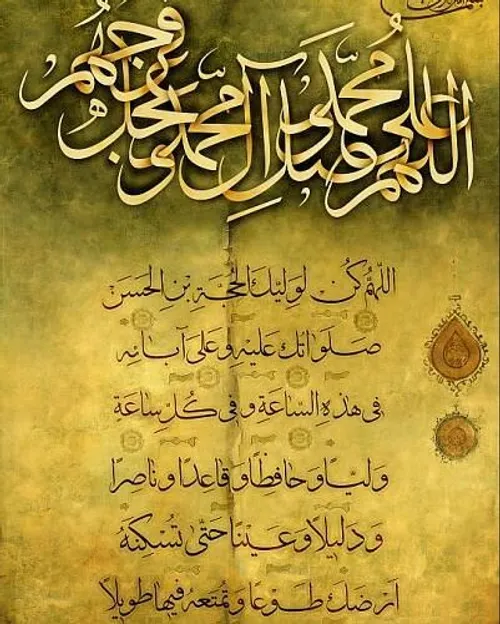 اللهم صل علی محمد و آل محمد و عجل فرجهم
اللّٰهُمَّ كُنْ لِوَلِيِّكَ الْحُجَّةِ بْنِ الْحَسَنِ
صَلَوَاتُكَ عَلَيْهِ وَعَلَىٰ آبَائِهِ
فِي هَٰذِهِ السَّاعَةِ وَفِي كُلِّ سَاعَةٍ
وَلِيًّا وَحَافِظًا وَقَاعِدًا وَنَاصِرًا
وَدَلِيلًا وَعَيْنًا حَتَّىٰ تُسْكِنَهُ
أَرْضَكَ طَوْعًا وَتُمَتِّعَهُ فِيهَا طَوِيلًا